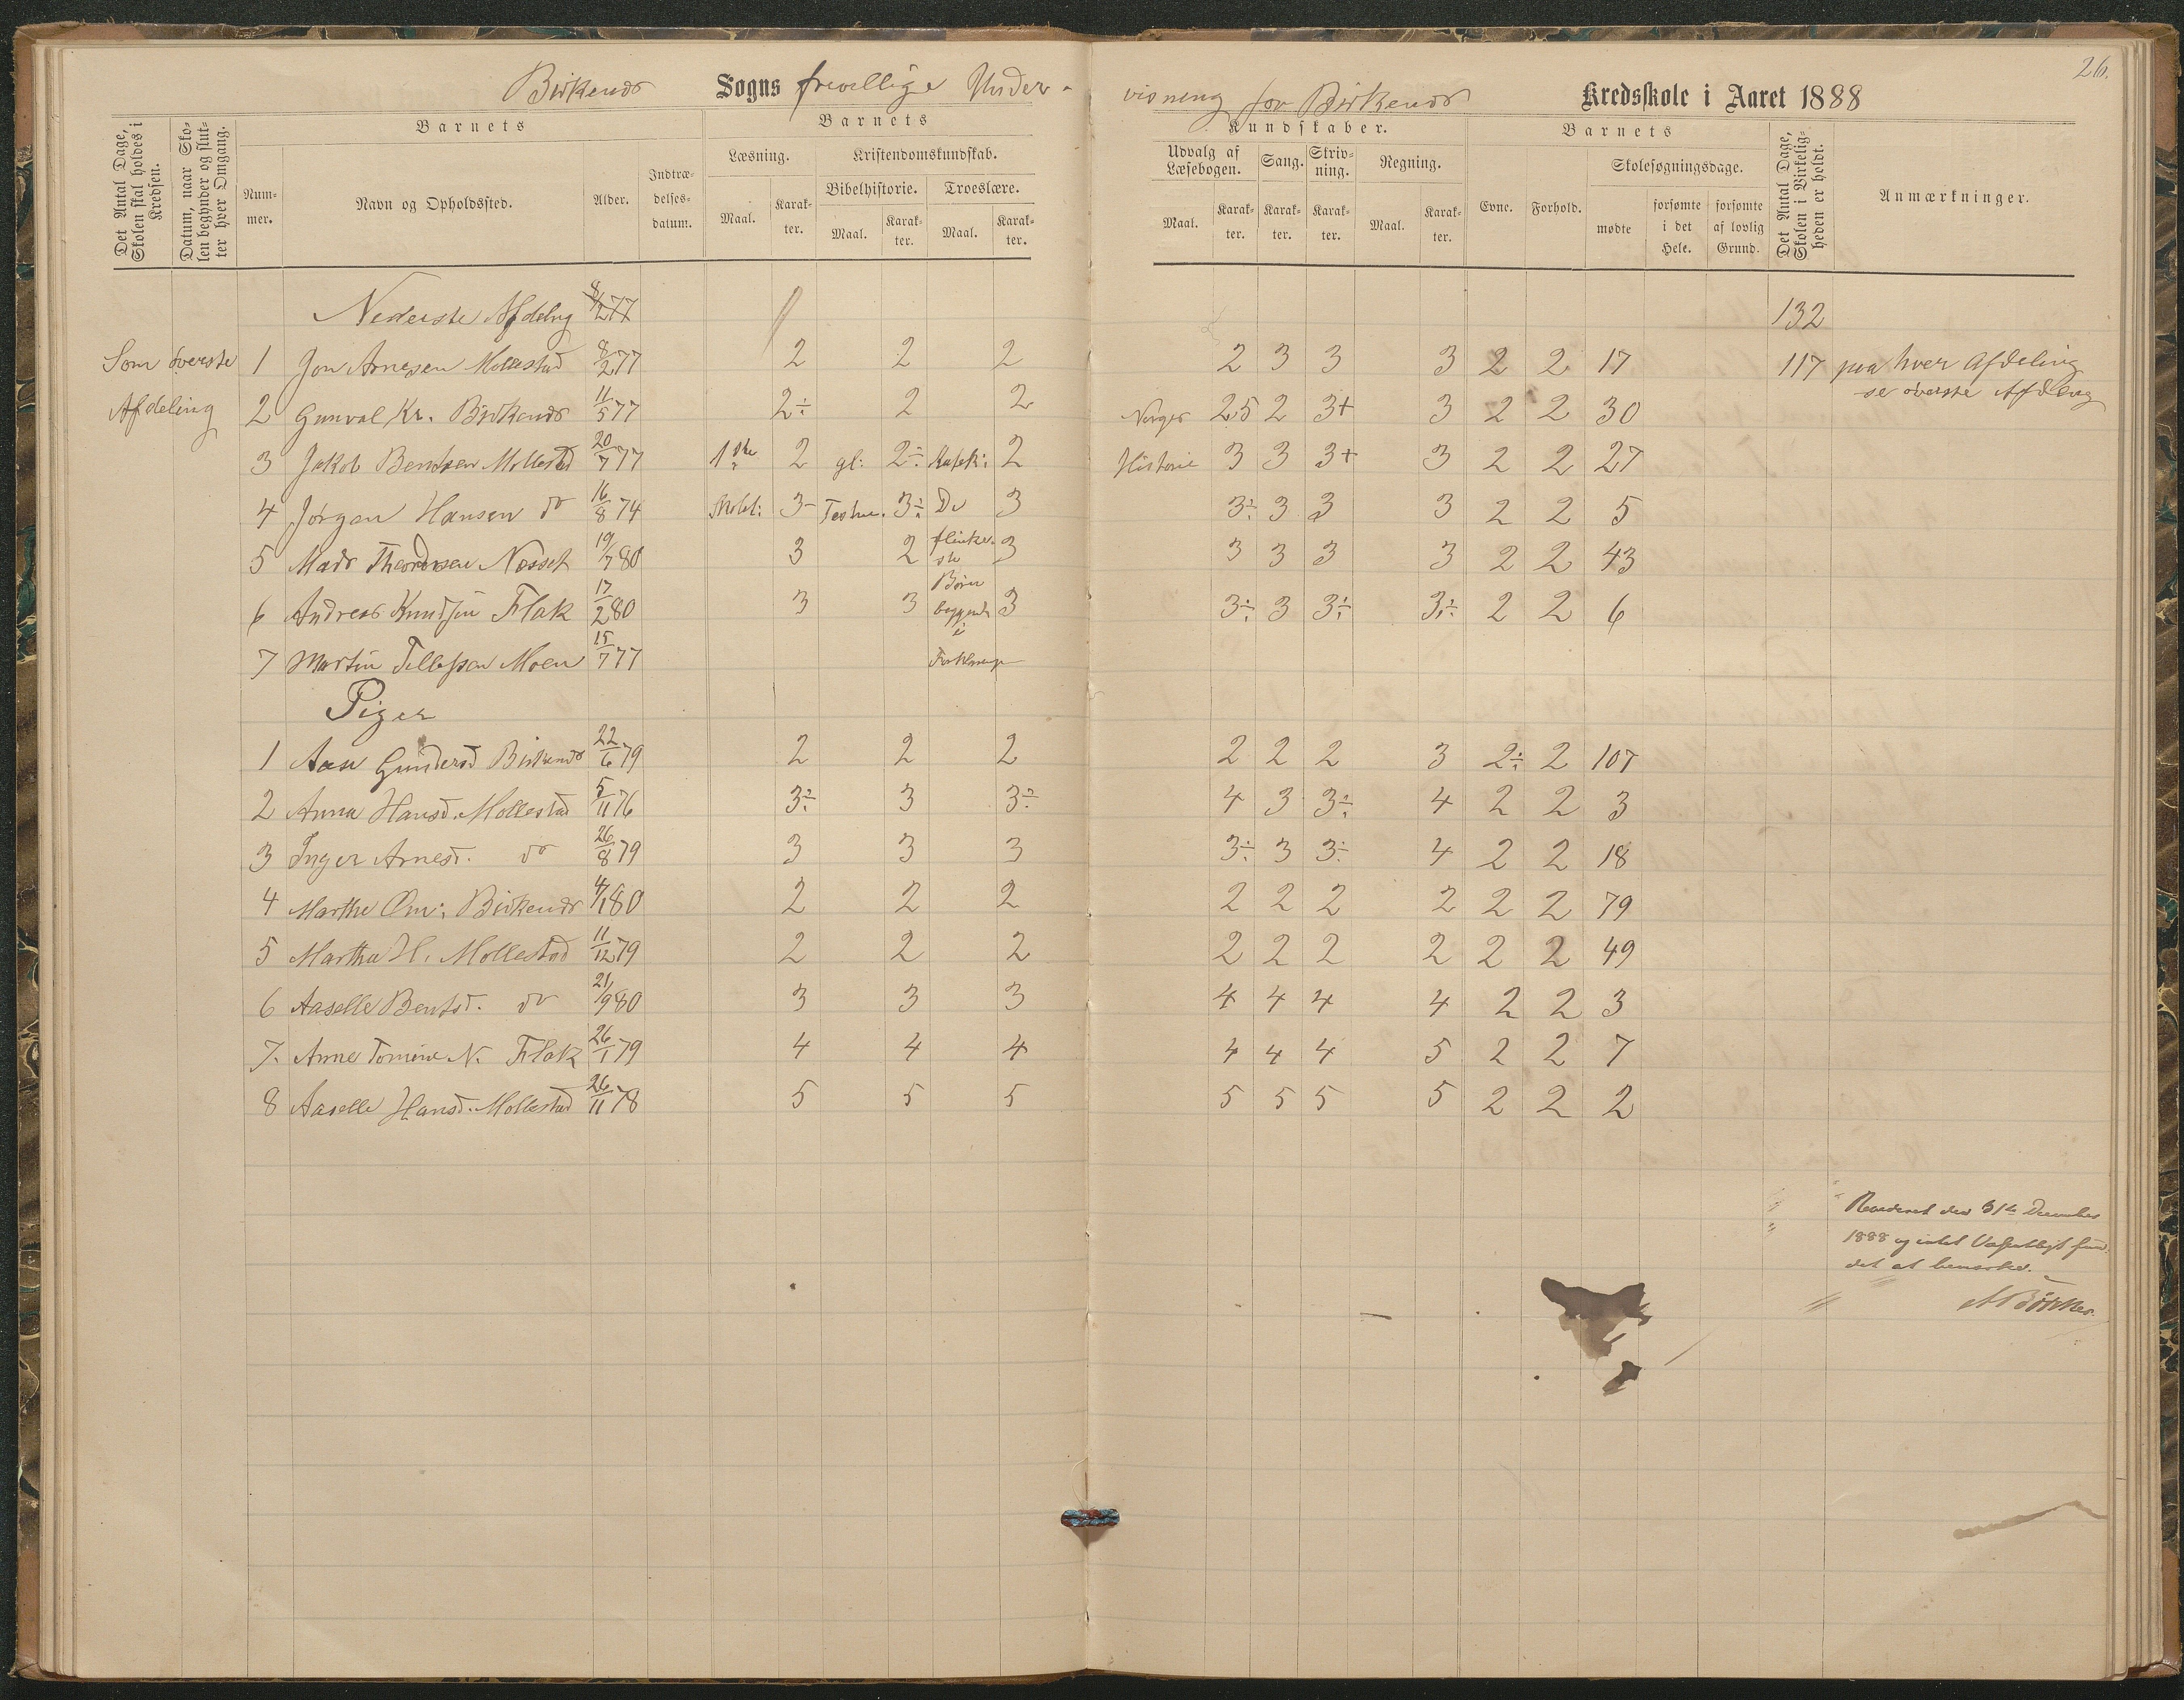 26.
Birkenæs Sogns frivillige Under-
visning for Birkenæs Kredsskole i Aaret 1888
Det Antal Dage, Skolen skal holdes i Kredsen.
Datum, naar Skolen begynder og slutter hver Omgang.
Barnets
Nummer.
Navn og Opholdssted.
Alder.
Indtrædelsesdatum.
Barnets
Læsning.
Kristendomskundskab.
Bibelhistorie.
Troeslære.
Maal. Karakter. Maal. Karakter. Maal. Karakter.
Kundskaber.
Udvalg af Læsebogen.
Sang.
Skrivning.
Regning.
Maal. Karakter. Karakter. Karakter. Maal. Karakter.
Barnets
Evne. Forhold.
Skolesøgningsdage.
mødte
forsømte i det Hele.
forsømte af lovlig Grund.
Det Antal Dage, Skolen i Virkeligheden er holdt.
Anmærkninger.
Nederste Afdelng 8/2 77 132
Som øverste 1 Jon Arnesen Mollestad 8/2 77 2 2 2 2 3 3 3 2 2 17 117 paa hver Afdeling
se øverste Afdeling
Afdeling 2 Gunval Kr. Birkenæs 11/5 77 2÷ 2 2 Norges 2,5 2 3+ 3 2 2 30
3 Jakob Bentsen Mollestad 20/7 77 1ste 2 gl: 2÷ Katek: 2 Historie 3 3 3+ 3 2 2 27
4 Jørgen Hansen do 16/8 74 3- Testm. 3÷ De 3 3÷ 3 3 3 2 2 5
5 Mads Theodorsen Næsset 19/7 80 3 2 flinke-
ste 3 3 3 3 3 2 2 43
Børn
6 Andreas Knudsen Flak 17/2 80 3 3 begyndt 3 3÷ 3 3÷ 3÷ 2 2 6
i
7 Martin Tellefsen Moen 15/7 77 Forklaringen
Piger
1 Aase Gundersd Birkenæs 22/6 79 2 2 2 2 2 2 3 2÷ 2 107
2 Anna Hansd. Mollestad 5/11 76 3÷ 3 3÷ 4 3 3÷ 4 2 2 3
3 Inger Arnesd. do 26/8 79 3 3 3 3÷ 3 3÷ 4 2 2 18
4 Marthe Om: Birkenæs 4/1 80 2 2 2 2 2 2 2 2 2 79
5 Martha H. Mollestad 11/12 79 2 2 2 2 2 2 2 2 2 49
6 Aaselle Bentsd. do 21/9 80 3 3 3 4 4 4 4 2 2 3
7. Anne Tomine N. Flak 26/1 79 4 4 4 4 4 4 5 2 2 7
8 Aaselle Hansd. Mollestad 26/11 78 5 5 5 5 5 5 5 2 2 2
Revideret den 31te December
1888 og intet Væsentligt fun-
det at bemærke.